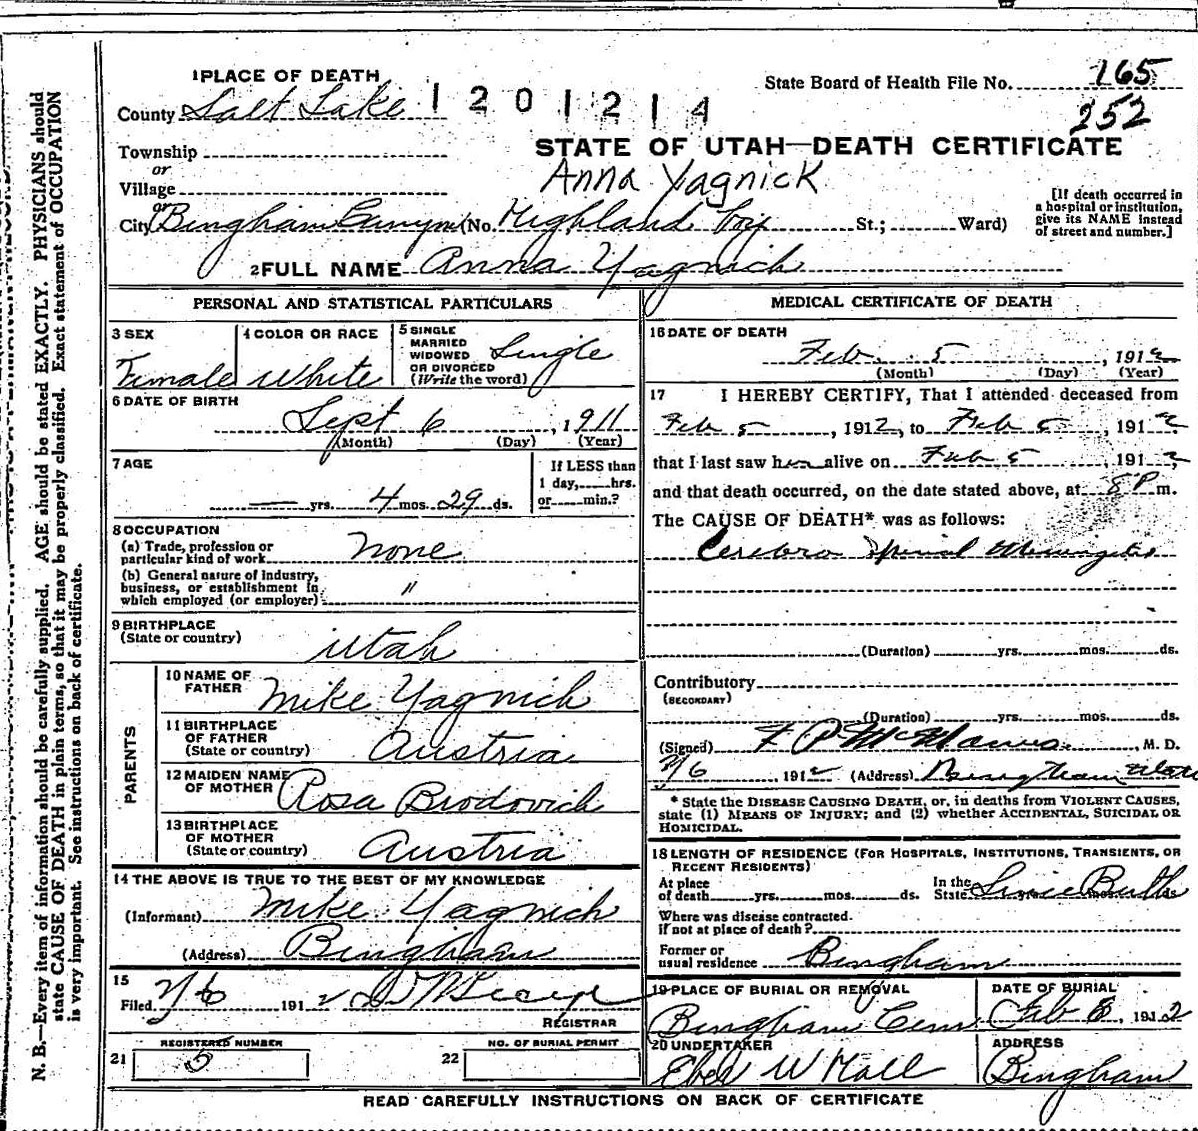 1 PLACE OF DEATH
County Salt Lake
1201214
State Board of Health File No. 165
252
Township
or
Village
or
STATE OF UTAH—DEATH CERTIFICATE
Anna Yagnick
City Bingham Canyon (No. Highland Boy St.; Ward)
[If death occurred in a hospital or institution, give its NAME instead of street and number.]
2 FULL NAME Anna Yagnich
PERSONAL AND STATISTICAL PARTICULARS
3 SEX
Female
4 COLOR OR RACE
White
5 SINGLE
MARRIED
WIDOWED
OR DIVORCED
(Write the word)
Single
6 DATE OF BIRTH
Sept 6, 1911
(Month) (Day) (Year)
7 AGE
— yrs. 4 mos. 29 ds.
If LESS than
1 day, hrs.
or min.?
8 OCCUPATION
(a) Trade, profession or
particular kind of work none
(b) General nature of industry,
business, or establishment in
which employed (or employer) "
9 BIRTHPLACE
(State or country)
Utah
PARENTS
10 NAME OF
FATHER
Mike Yagnich
11 BIRTHPLACE
OF FATHER
(State or country)
Austria
12 MAIDEN NAME
OF MOTHER
Rosa Brodovich
13 BIRTHPLACE
OF MOTHER
(State or country)
Austria
14 THE ABOVE IS TRUE TO THE BEST OF MY KNOWLEDGE
(Informant) Mike Yagnich
(Address) Bingham
15
Filed 2/6 1912
REGISTRAR
REGISTERED NUMBER
21 5
NO. OF BURIAL PERMIT
22
MEDICAL CERTIFICATE OF DEATH
16 DATE OF DEATH
Feb 5, 1912
(Month) (Day) (Year)
17 I HEREBY CERTIFY, That I attended deceased from
Feb 5, 1912, to Feb 5 1912
that I last saw her alive on Feb 5, 1912
and that death occurred, on the date stated above, at 8 P m.
The CAUSE OF DEATH* was as follows:
Cerebro Spinal Meningitis
(Duration) yrs. mos. ds.
Contributory
(SECONDARY)
(Duration) yrs. mos. ds.
(Signed) F P McManus, M. D.
2/6, 1912 (Address) Bingham Utah
* State the DISEASE CAUSING DEATH, or, in deaths from VIOLENT CAUSES,
state (1) MEANS OF INJURY; and (2) whether ACCIDENTAL, SUICIDAL OR
HOMICIDAL.
18 LENGTH OF RESIDENCE (FOR HOSPITALS, INSTITUTIONS, TRANSIENTS, OR
RECENT RESIDENTS)
At place
of death yrs. mos. ds.
In the
State Since Birth
Where was disease contracted.
if not at place of death?
Former or
usual residence Bingham
19 PLACE OF BURIAL OR REMOVAL
Bingham Cem
DATE OF BURIAL
Feb 6, 1912
20 UNDERTAKER
W Hall
ADDRESS
Bingham
READ CAREFULLY INSTRUCTIONS ON BACK OF CERTIFICATE
N. B.—Every item of information should be carefully supplied. AGE should be stated EXACTLY. PHYSICIANS should
state CAUSE OF DEATH in plain terms, so that it may be properly classified. Exact statement of OCCUPATION
is very important. See instructions on back of certificate.